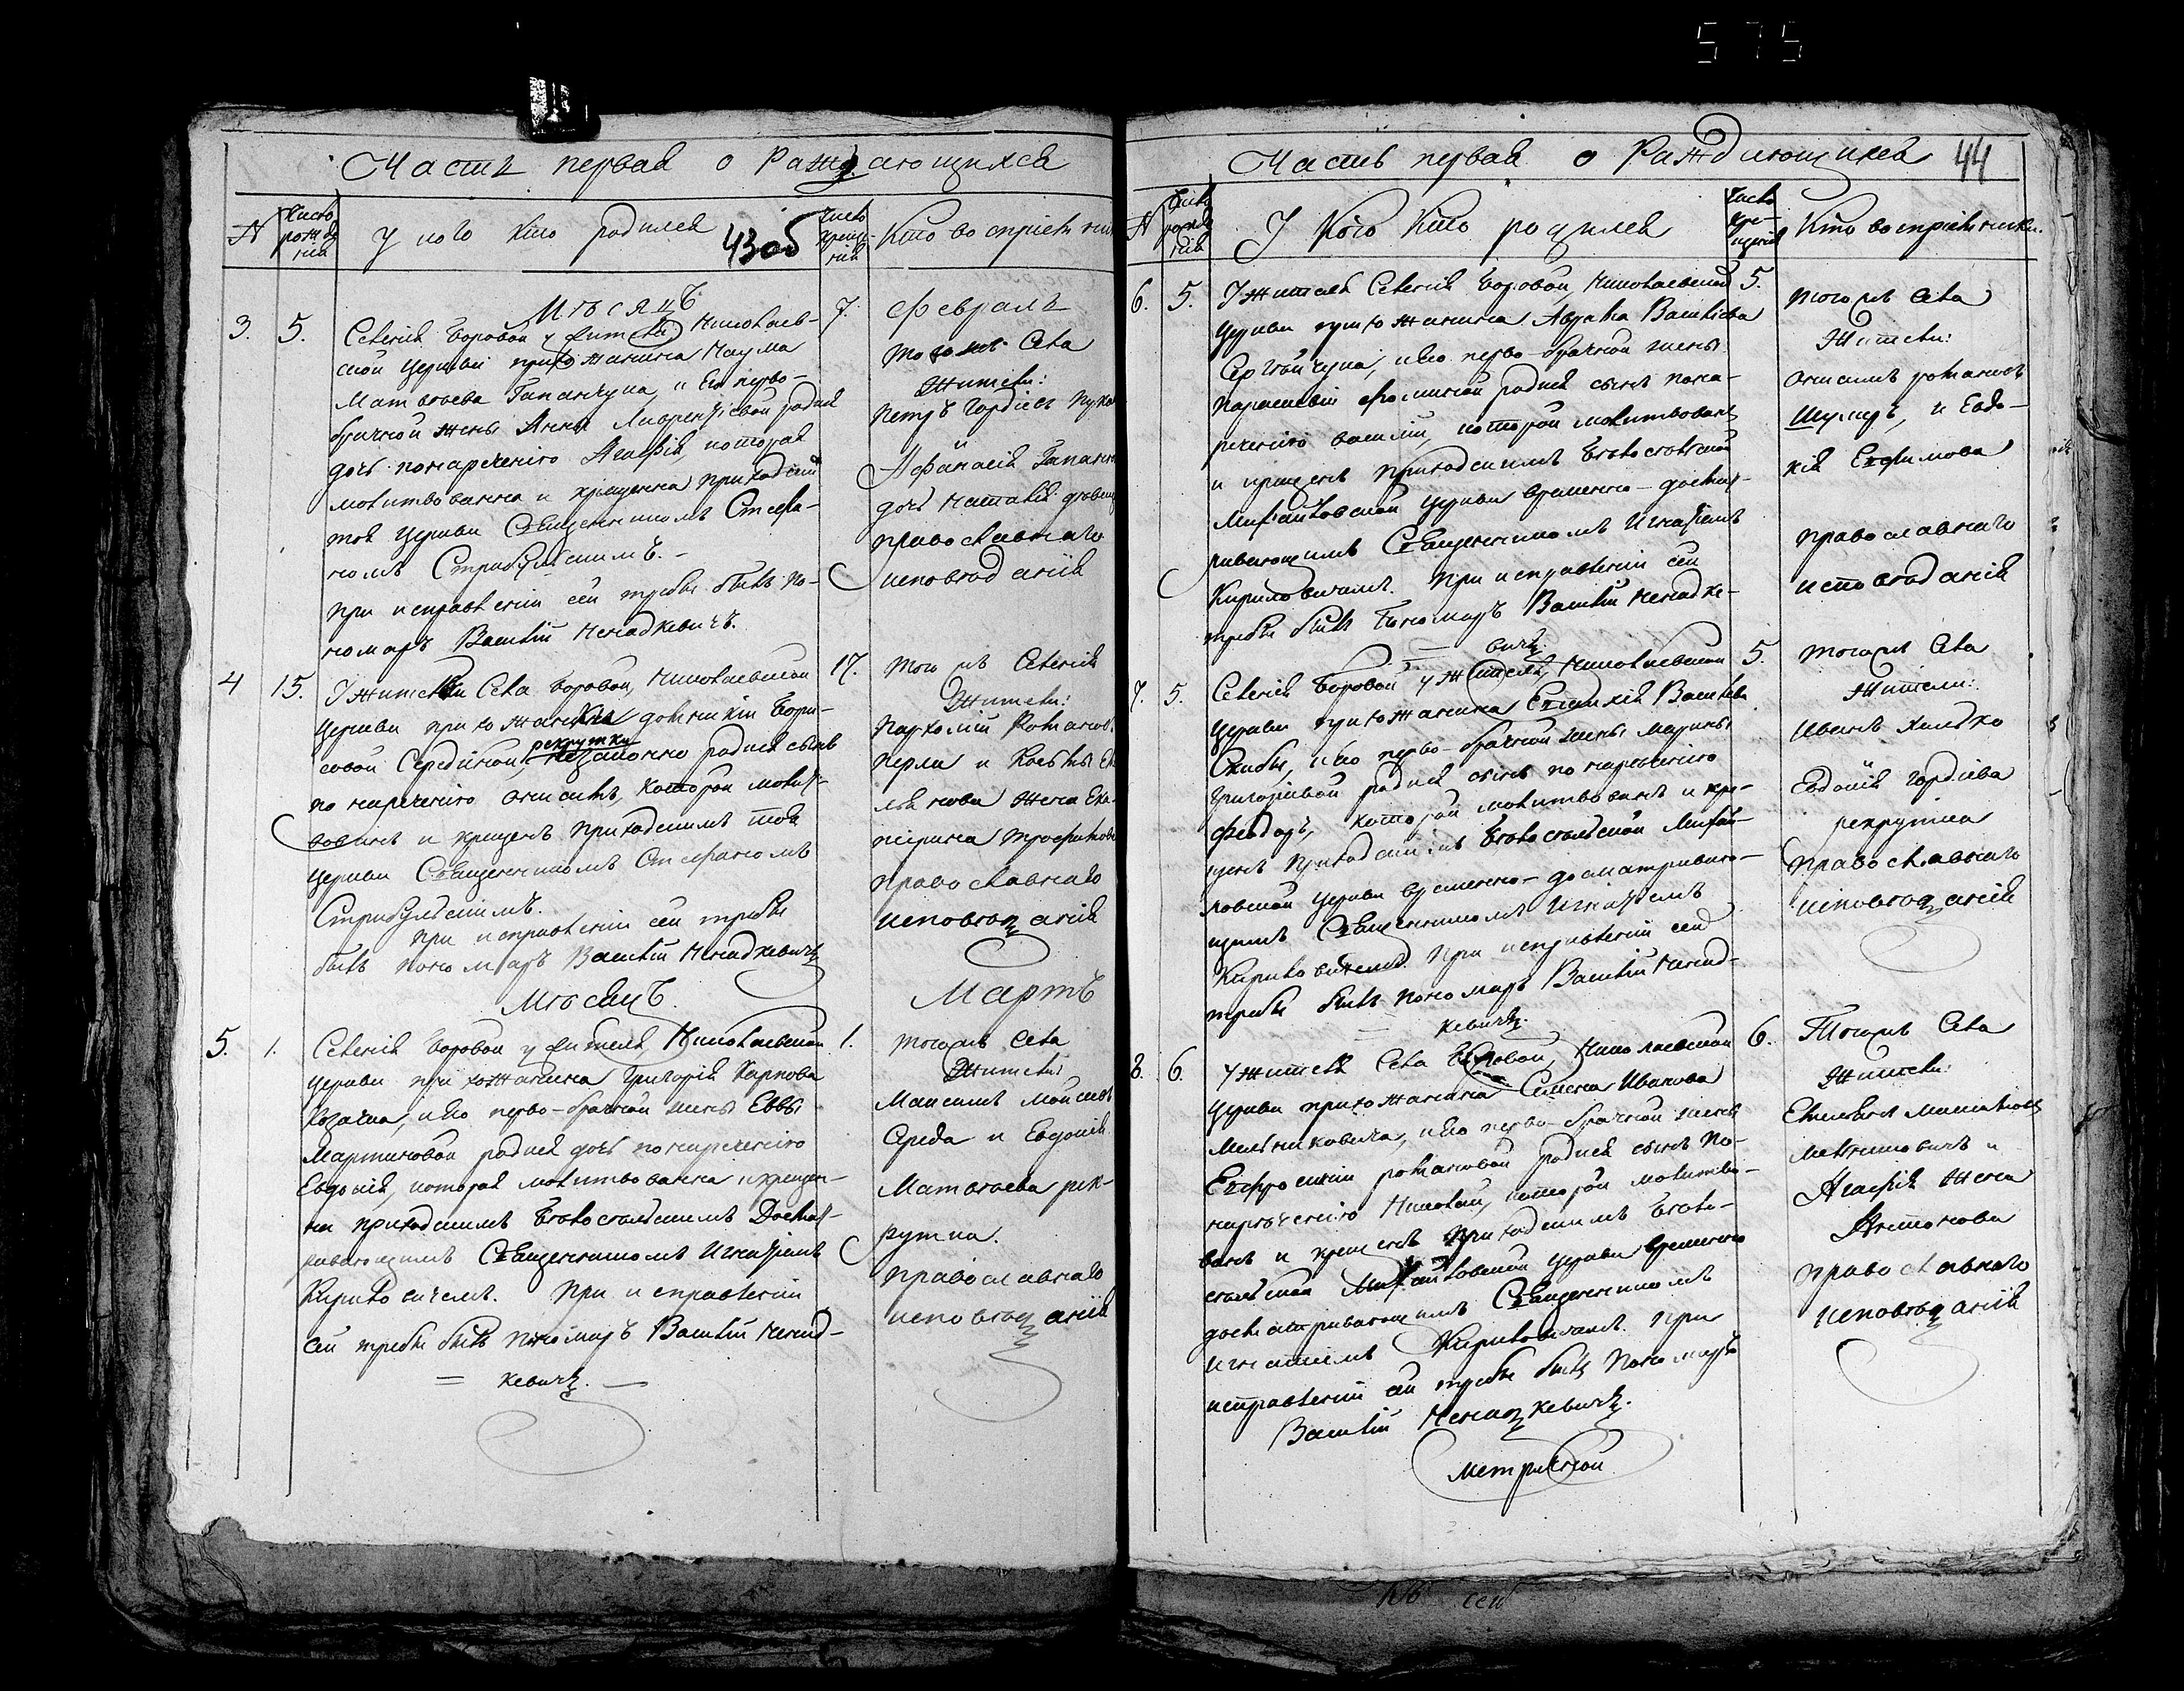 575
Часть первая о Раждающихся
N
Число рожденія
У кого кто родился
43об
Число крещенія
Кто воспріемники
Мѣсяцъ
Февраль
3. 5.
Селенія Боровой у жителя Николаев-
ской Церкви прихожанина Наума
Матвѣева Гапанчука, и Его перво-
брачной жены Анны Лаврентіевой родися
дочь понареченію Агафія, которая
молитвованна и крещенна приходскимъ
той Церкви Священникомъ Стефа-
номъ Стрибульскимъ.
При исправленіи сей требы былъ по-
номаръ Василій Ненадкевичъ.
7.
того жъ Села
Жители:
Петръ Гордіевъ
Афанасія
дочь Наталія
православнаго
исповѣданія
4 15.
У жителки Села Боровой, Николаевской
Церкви прихожанки домникіи Бори-
совой Серединой, рекрутки незаконно родися сынъ
по нареченію Онисимъ, которой молит-
вованъ и крещенъ приходскимъ тоя
Церкви Священникомъ Стефаномъ
Стрибульскимъ.
При исправленіи сей требы
былъ пономаръ Василій Ненадкевичъ
17.
того жъ Селенія
Жители:
Пархомій Романовъ
жена Ека-
терина Трофимова
православнаго
исповѣданія
Мѣсяцъ
Мартъ
5. 1.
Селенія Боровой у жителя, Николаевской
Церкви прихожанина Григорія Карпова
Козачка, и Его перво-брачной жены Еввы
Мартиновой родися дочь по нареченію
Евдокія, которая молитвованна и крещен-
на приходскимъ Благословскимъ Досмат-
ривающимъ Священникомъ Игнатіемъ
Кириловичемъ. При исправленіи
сей требы былъ пономаръ Василій Ненад-
кевичъ.
1.
того жъ Села
Жители:
Максимъ Моисеевъ
Середа и Евдокія
Матвѣева рек-
рутка.
православнаго
исповѣданія
Часть первая о Раждающихся
44
N
Число рожденія
У Кого Кто родился
Число Крещенія
Кто воспріемники.
6. 5.
У жителя Селенія Боровой, Николаевской
Церкви прихожанина Аврама Василіева
Сергійчука, и Его перво-брачной жены
Параскевіи Фоминой родися сынъ пона-
реченію Василій, которой молитвованъ
и крещенъ Приходскимъ Благословской
Михайловской Церкви временно-досмат-
ривающимъ Священникомъ Игнатіемъ
Кириловичемъ. При исправленіи сей
требы былъ Пономаръ Василій Ненадке-
вичъ
5.
того жъ Села
Жители:
Онисимъ Романовъ
и Евдо-
кія Евфимова
православнаго
исповѣданія
7. 5.
Селенія Боровой у Жителя, Николаевской
Церкви прихожанина Евстафія Василіева
Скибы, и Его перво-брачной жены Марины
Григоріевой родися сынъ по нареченію
Феодоръ, которой молитвованъ и кре-
щенъ Приходскимъ Благословской Михай-
ловской Церкви временно-досматриваю-
щимъ Священникомъ Игнатіемъ
Кириловичемъ. При исправленіи сей
требы былъ Пономаръ Василій Ненад-
кевичъ.
5.
того жъ Села
Жители:
Иванъ
Евдокія Гордіева
рекрутка
православнаго
исповѣданія
8. 6.
У жителя Села Боровой, Николаевской
Церкви прихожанина Семена Иванова
Мельниковича, и Его перво-брачной жены
Евфросиніи Романовой родися сынъ По-
нареченію Николай, которой молитво-
ванъ и крещенъ Приходскимъ Благо-
словской Михайловской Церкви временно
досматривающимъ Священникомъ
Игнатіемъ Кириловичемъ. При
исправленіи сей требы былъ Пономаръ
Василій Ненадкевичъ.
6.
Того жъ Села
Жители:
Мельниковичъ и
Агафія жена
Антонова
православнаго
исповѣданія
Метрической